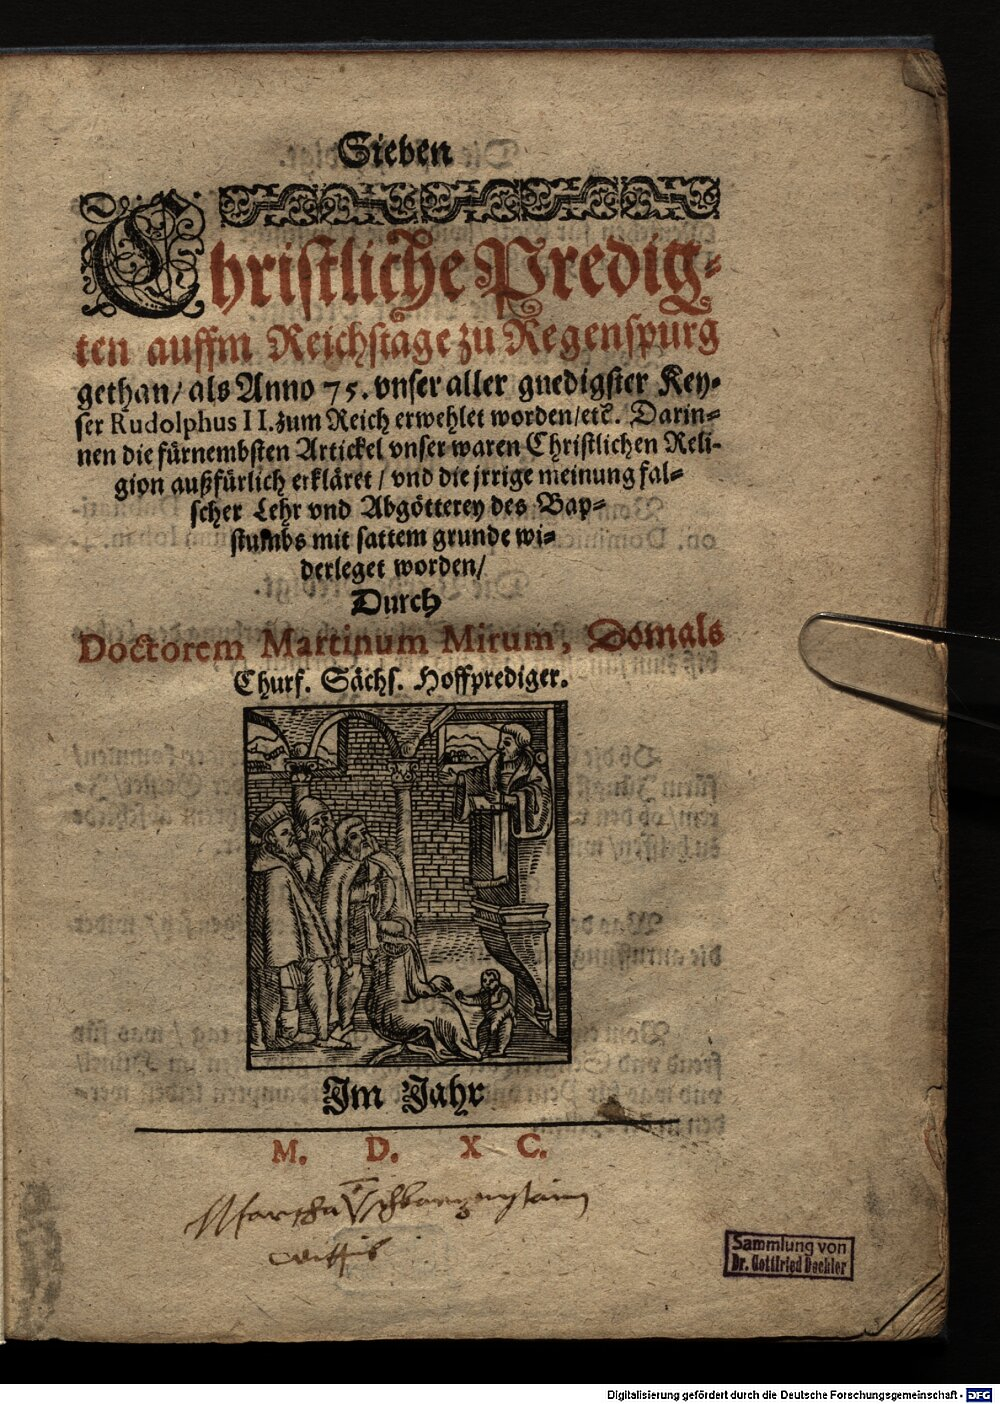 Sieben
Christliche Predig-
ten auffm Reichstage zu Regenspurg
gethan/ als Anno 75. vnser aller gnedigster Key-
ser Rudolphus II. zum Reich erwehlet worden/etc. Darin-
nen die fürnembsten Artickel vnser waren Christlichen Reli-
gion außfürlich erkläret / vnd die jrrige meinung fal-
scher Lehr vnd Abgötterey des Bap-
stumbs mit sattem grunde wi-
derleget worden/
Durch
Doctorem Martinum Mirum, Domals
Churf. Sächs. Hoffprediger.
Im Jahr
M. D. X C.
Sammlung von
Dr. Gottfried Dechler
Digitalisierung gefördert durch die Deutsche Forschungsgemeinschaft - DFG